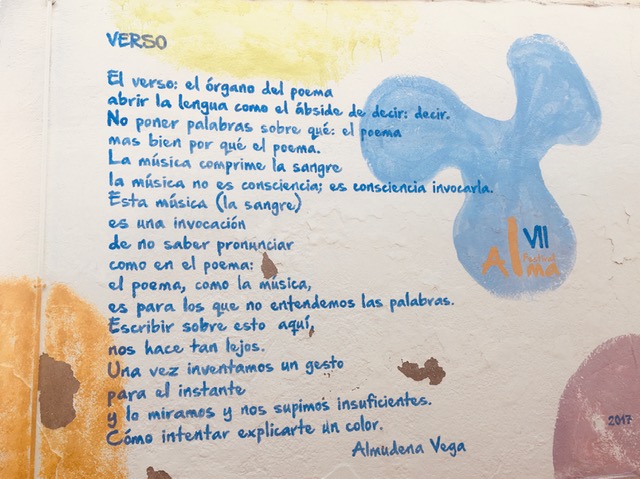 VERSO
El verso: el órgano del poema
abrir la lengua como el ábside de decir: decir.
No poner palabras sobre qué: el poema
mas bien por qué el poema.
La música comprime la sangre
la música no es consciencia; es consciencia invocarla.
Esta música (la sangre)
es una invocación
de no saber pronunciar
como en el poema:
el poema, como la música,
es para los que no entendemos las palabras.
Escribir sobre esto aquí,
nos hace tan lejos.
Una vez inventamos un gesto
para el instante
y lo miramos y nos supimos insuficientes.
Cómo intentar explicarte un color.
Almudena Vega
VII
Festival
Alma
2017